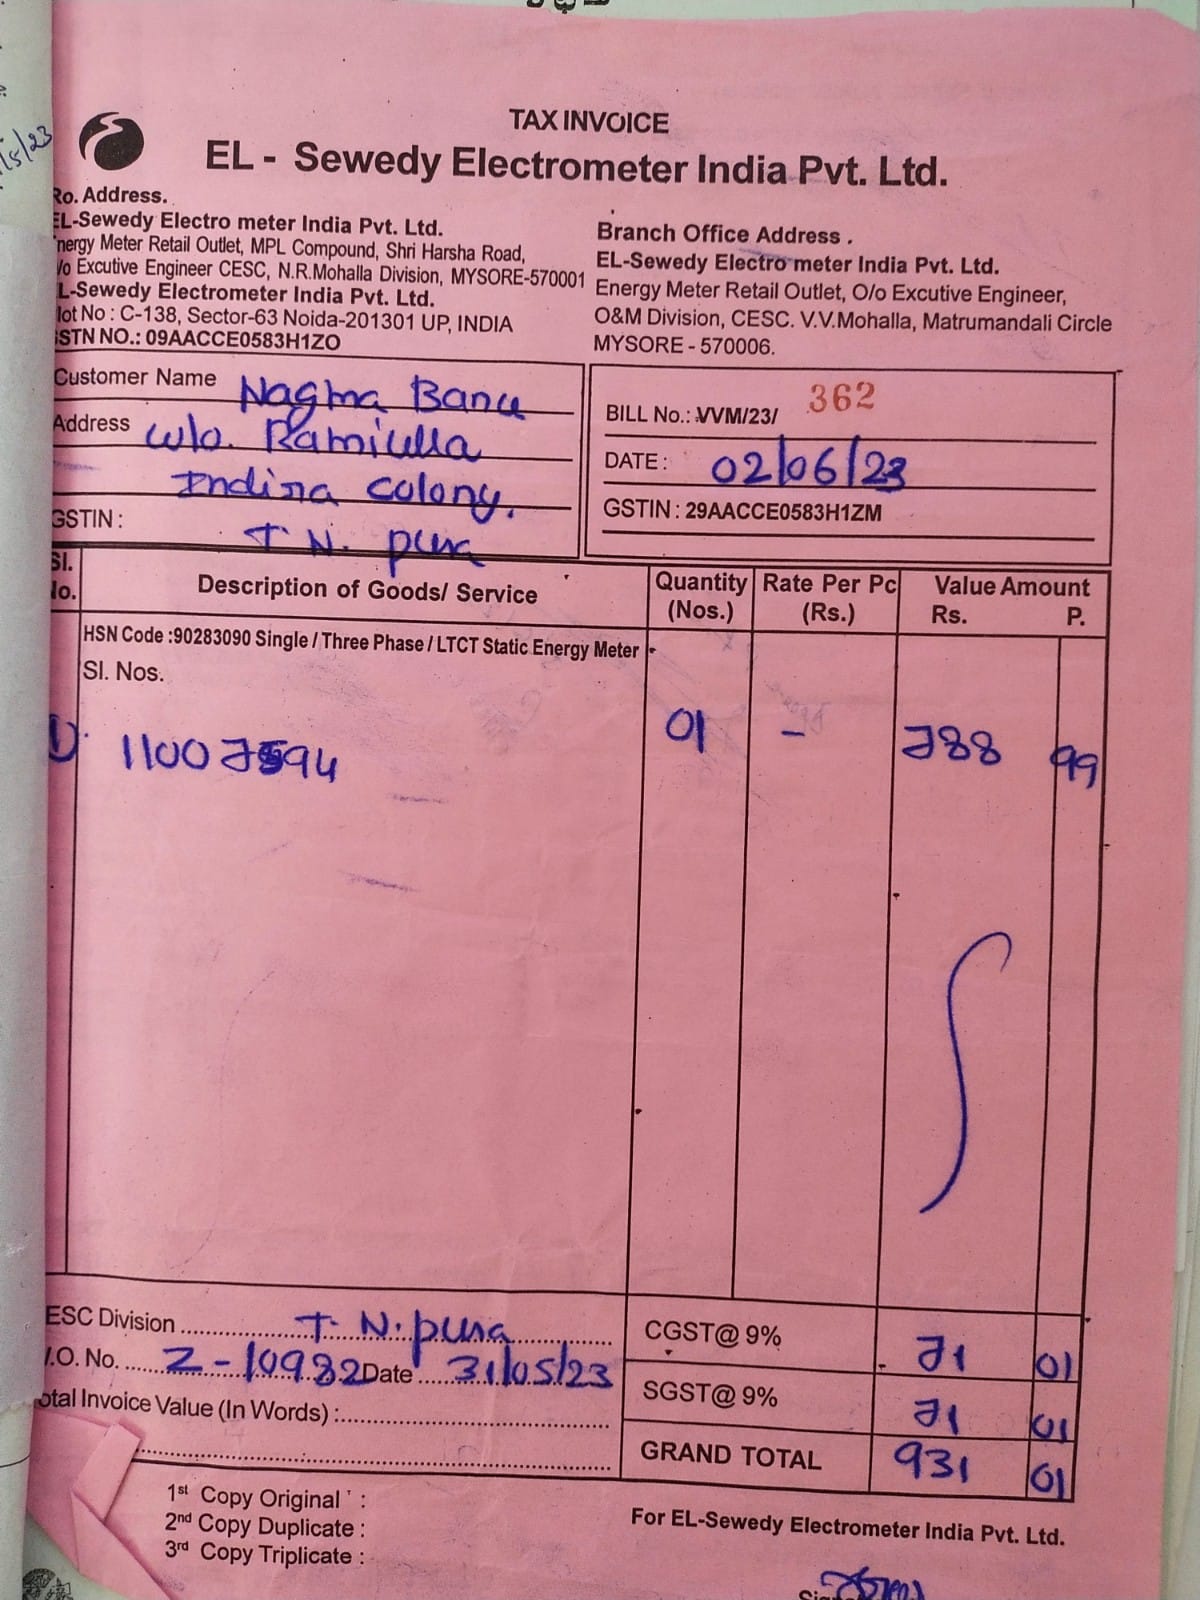 /5/23
TAX INVOICE
EL - Sewedy Electrometer India Pvt. Ltd.
Ro. Address.
EL-Sewedy Electro meter India Pvt. Ltd.
nergy Meter Retail Outlet, MPL Compound, Shri Harsha Road,
/o Excutive Engineer CESC, N.R.Mohalla Division, MYSORE-570001
L-Sewedy Electrometer India Pvt. Ltd.
lot No : C-138, Sector-63 Noida-201301 UP, INDIA
GSTN NO.: 09AACCE0583H1ZO
Branch Office Address .
EL-Sewedy Electro meter India Pvt. Ltd.
Energy Meter Retail Outlet, O/o Excutive Engineer,
O&M Division, CESC. V.V.Mohalla, Matrumandali Circle
MYSORE - 570006.
Customer Name Nagma Banu
Address w/o. Ramiulla
Indira Colony.
GSTIN : T. N. pura
BILL No.: VVM/23/ 362
DATE : 02/06/23
GSTIN : 29AACCE0583H1ZM
Sl. No. Description of Goods/ Service Quantity (Nos.) Rate Per Pc (Rs.) Value Amount Rs. P.
HSN Code :90283090 Single / Three Phase / LTCT Static Energy Meter
Sl. Nos.
1) 11007594 01 - 788 99
ESC Division T. N. pura
.O. No. Z-10982 Date 31/05/23
otal Invoice Value (In Words) :
CGST@ 9% 71 01
SGST@ 9% 71 01
GRAND TOTAL 931 01
1st Copy Original :
2nd Copy Duplicate :
3rd Copy Triplicate :
For EL-Sewedy Electrometer India Pvt. Ltd.